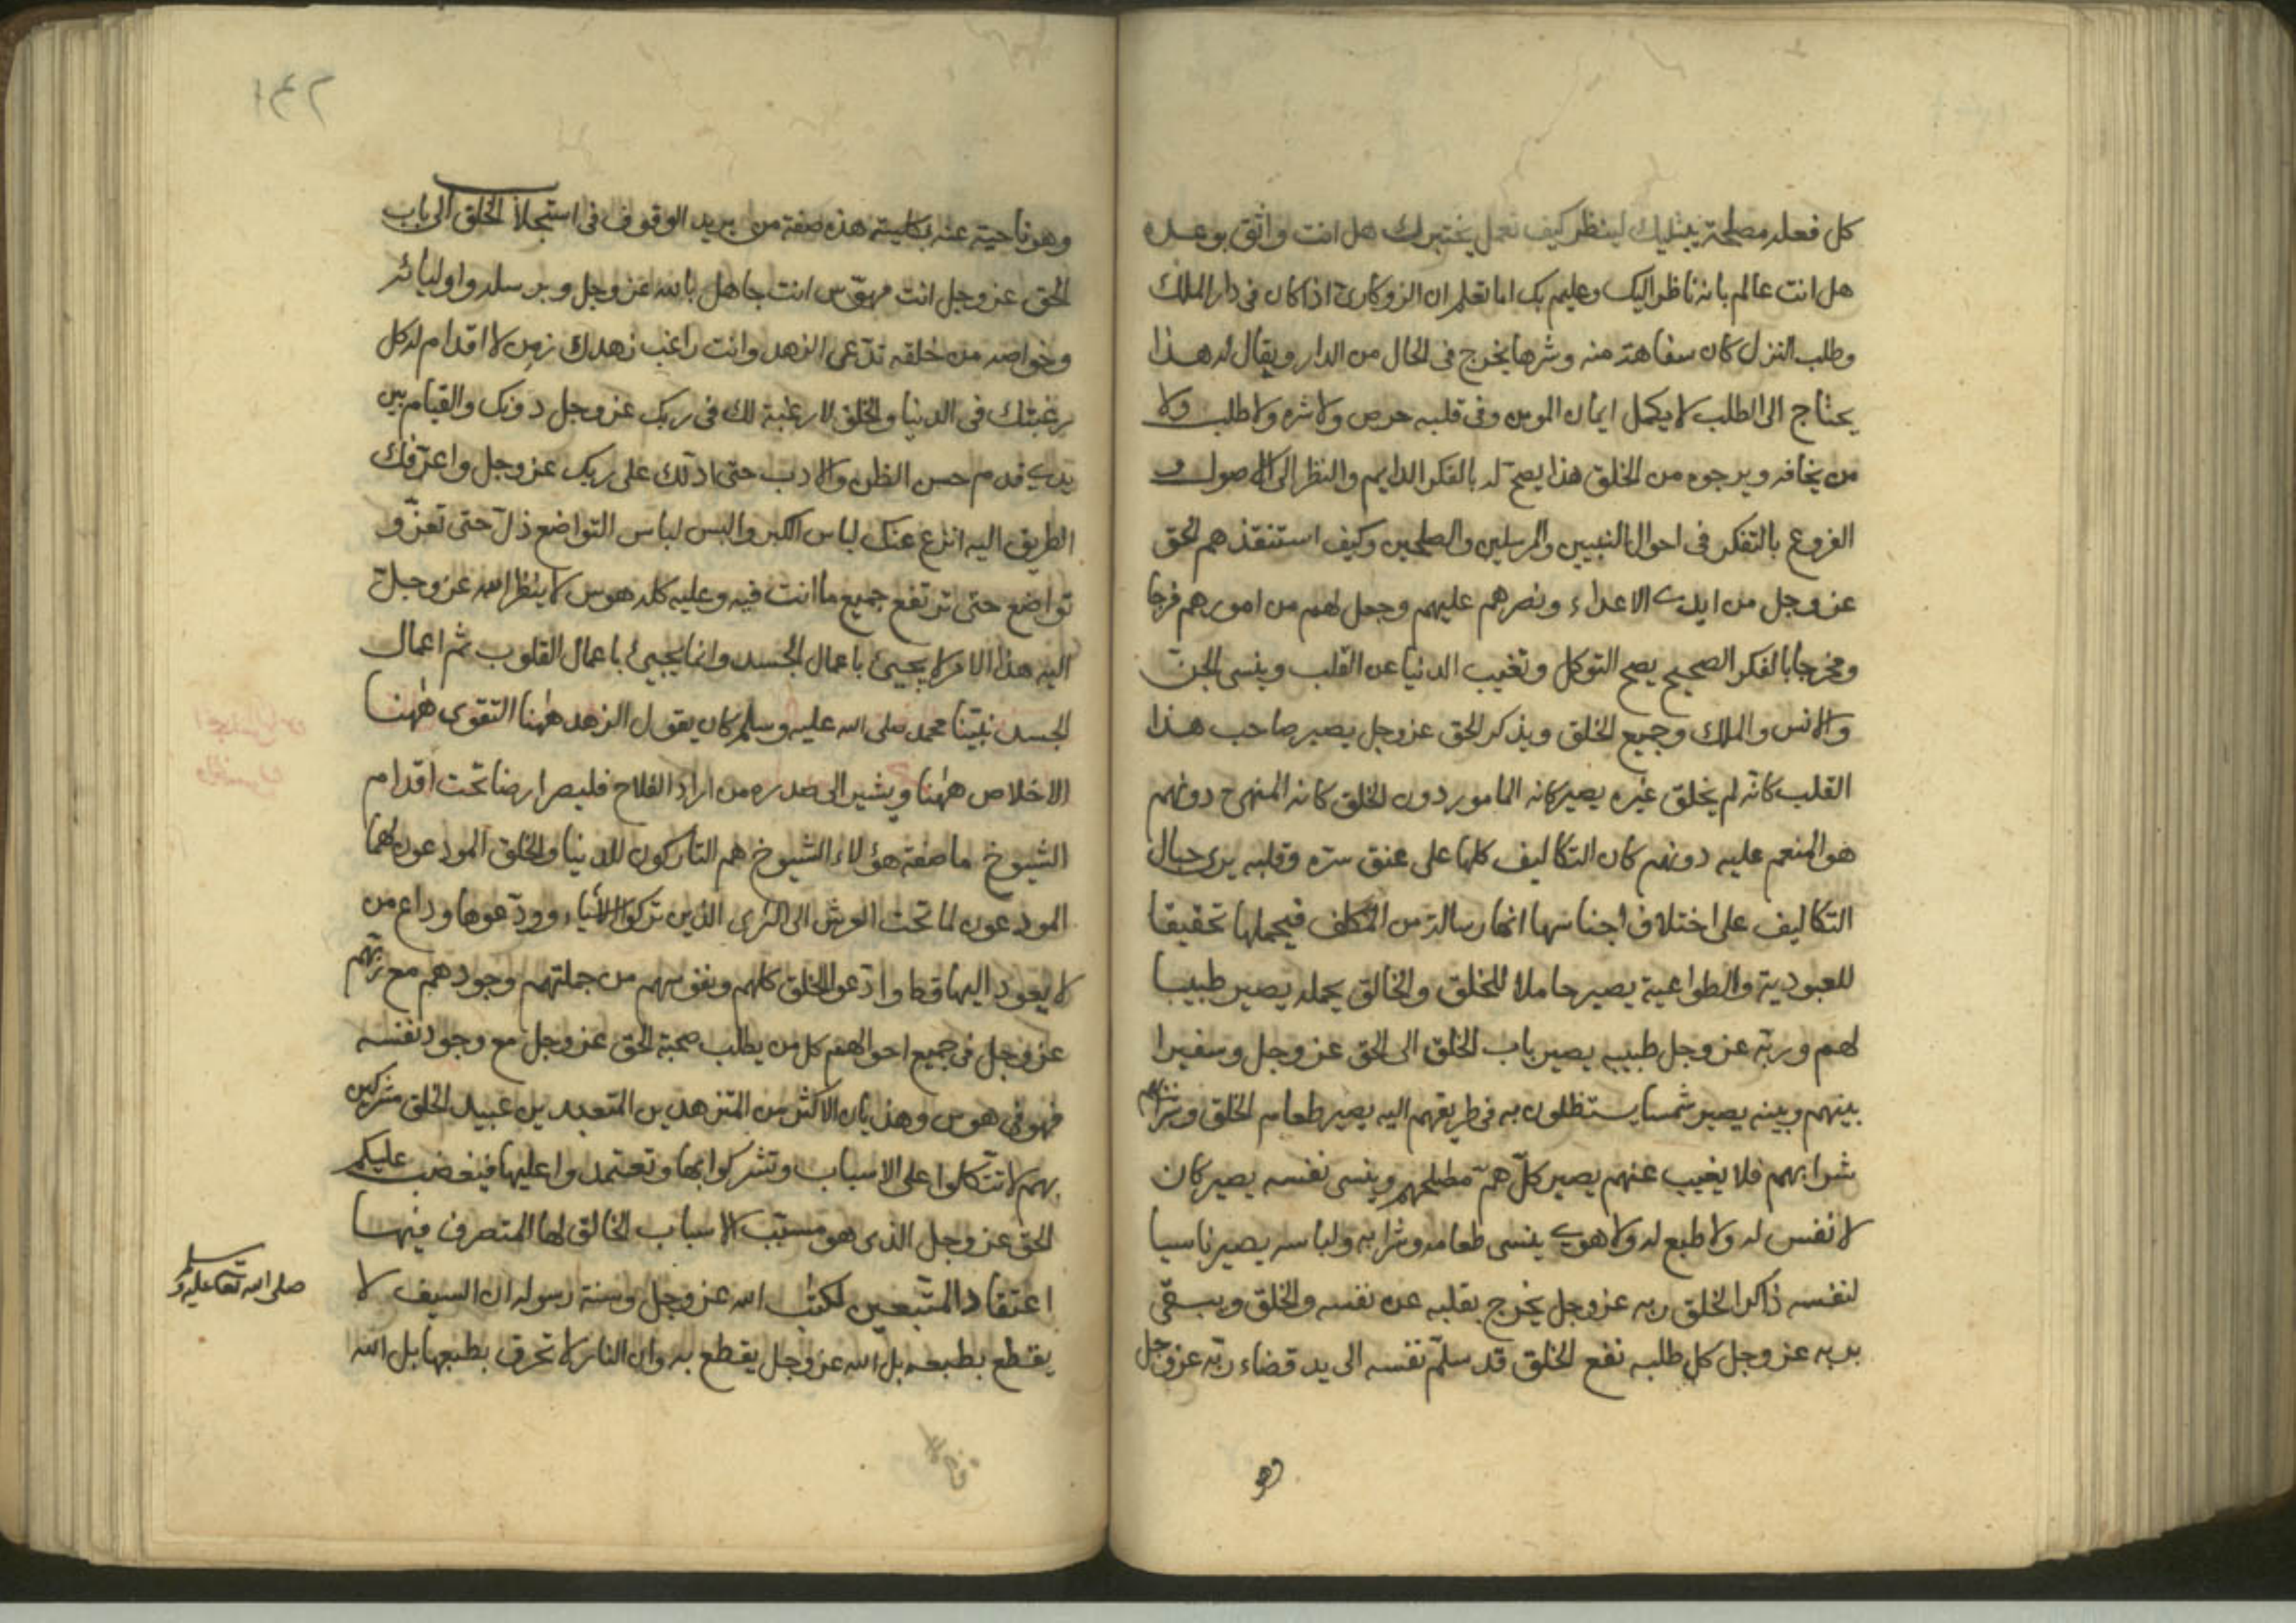 كل فعله مصلحة يبتليك لينظر كيف تعمل يختبرك هل انت واثق بوعده
هل انت عالم بانه ناظر اليك وعليم بك اما تعلم ان الروكاري اذا كان في دار الملك
وطلب النزل كان سفاهة منه وشرها يخرج في الحال من الدار ويقال له هذا
يحتاج الى الطلب لا يكمل ايمان المومن وفي قلبه حرص ولا شره ولا طلب ولا
من يخافه ويرجوه من الخلق هذا يصح له بالفكر الدايم والنظر الى الاصول و
الفروع بالتفكر في احوال النبيين والمرسلين والصلحين وكيف استنقذهم الحق
عز وجل من ايدي الاعداء ونصرهم عليهم وجعل لهم من امورهم فرجا
ومخرجا بالفكر الصحيح يصح التوكل وتغيب الدنيا عن القلب وينسى الجن
والانس والملك وجميع الخلق ويذكر الحق عز وجل يصير صاحب هذا
القلب كانه لم يخلق غيره يصير كانه المامور دون الخلق كانه المنهى دونهم
هو المنعم عليه دونهم كان التكاليف كلها على عنق سره وقلبه يرى جبال
التكاليف على اختلاف اجناسها انها رسالة من المكلف فيحملها تحقيقا
للعبودية والطواعية يصير حاملا للخلق والخالق يحمله يصير طبيبا
لهم وربه عز وجل طبيبه يصير باب الخلق الى الحق عز وجل وسفيرا
بينهم وبينه يصير شمسا يستظلون به في طريقهم اليه يصير طعام الخلق و
شرابهم فلا يغيب عنهم يصير كل همه مصلحتهم وينسى نفسه يصير كان
لا نفس له ولا طبع له ولا هوي ينسى طعامه وشرابه ولباسه يصير ناسيا
لنفسه ذاكرا لخلق ربه عز وجل يخرج بقلبه عن نفسه والخلق ويبقى
بربه عز وجل كل طلبه نفع الخلق قد سلم نفسه الى يد قضاء ربه عز وجل
وهو
١٤٢
وهو ناحية عنه بكليته هذه صفة من يريد الوقوف في استجلاب الخلق الى باب
الحق عز وجل انت مهوس انت جاهل بالله عز وجل وبرسله واوليائه
وخواصه من خلقه تدعى الزهد وانت راغب زهدك زمن لا اقدام له كل
رغبتك في الدنيا والخلق لا رغبة لك في ربك عز وجل دونك والقيام بين
يدي قدم حسن الظن والادب حتى ادلك على ربك عز وجل واعرفك
الطريق اليه انزع عنك لباس الكبر والبس لباس التواضع ذل حتى تعز و
تواضع حتى ترتفع جميع ما انت فيه وعليه كله هوس لا ينظر الله عز وجل
اليه هذا الامر لا يجيئ باعمال الجسد وانما يجيئ باعمال القلوب ثم اعمال
الجسد نبينا محمد صلى الله عليه وسلم كان يقول الزهد ههنا التقوى ههنا
الاخلاص ههنا ويشير الى صدره من اراد الفلاح فليصر ارضا تحت اقدام
الشيوخ ما صفة هؤلاء الشيوخ هم التاركون للدنيا والخلق المودعون لهما
المودعون لما تحت العرش الى الثرى الذين تركوا الاشياء وودعوها وداع من
لا يعود اليها قط وادعوا الخلق كلهم ونفوسهم من جملتهم وجودهم مع ربهم
عز وجل في جميع احوالهم كل من يطلب صحبة الحق عز وجل مع وجود نفسه
فهو في هوس وهذيان الاكثر من المتزهدين المتعبدين عبيد الخلق مشركين
بهم لا تتكلوا على الاسباب وتشركوا بها وتعتمدوا عليها فيغضب عليكم
الحق عز وجل الذى هو مسبب الاسباب الخالق لها المتصرف فيها
اعتقاد المتبعين لكتب الله عز وجل وسنة رسوله ان السيف لا
صلى الله تعا عليه وسلم
يقطع بطبعه بل الله عز وجل يقطع به وان النار لا تحرق بطبعها بل الله